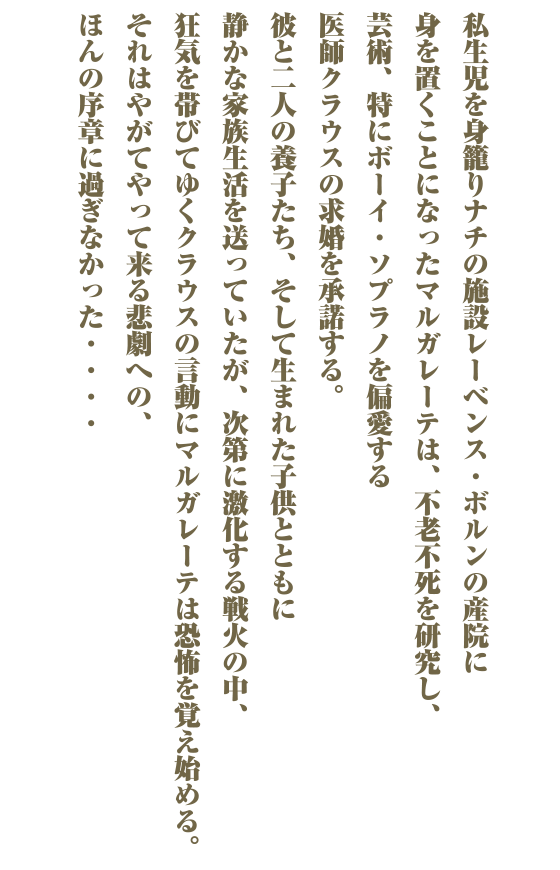 私生児を身籠りナチの施設レーベンス・ボルンの産院に
身を置くことになったマルガレーテは、不老不死を研究し、
芸術、特にボーイ・ソプラノを偏愛する
医師クラウスの求婚を承諾する。
彼と二人の養子たち、そして生まれた子供とともに
静かな家族生活を送っていたが、次第に激化する戦火の中、
狂気を帯びてゆくクラウスの言動にマルガレーテは恐怖を覚え始める。
それはやがてやって来る悲劇への、
ほんの序章に過ぎなかった・・・・